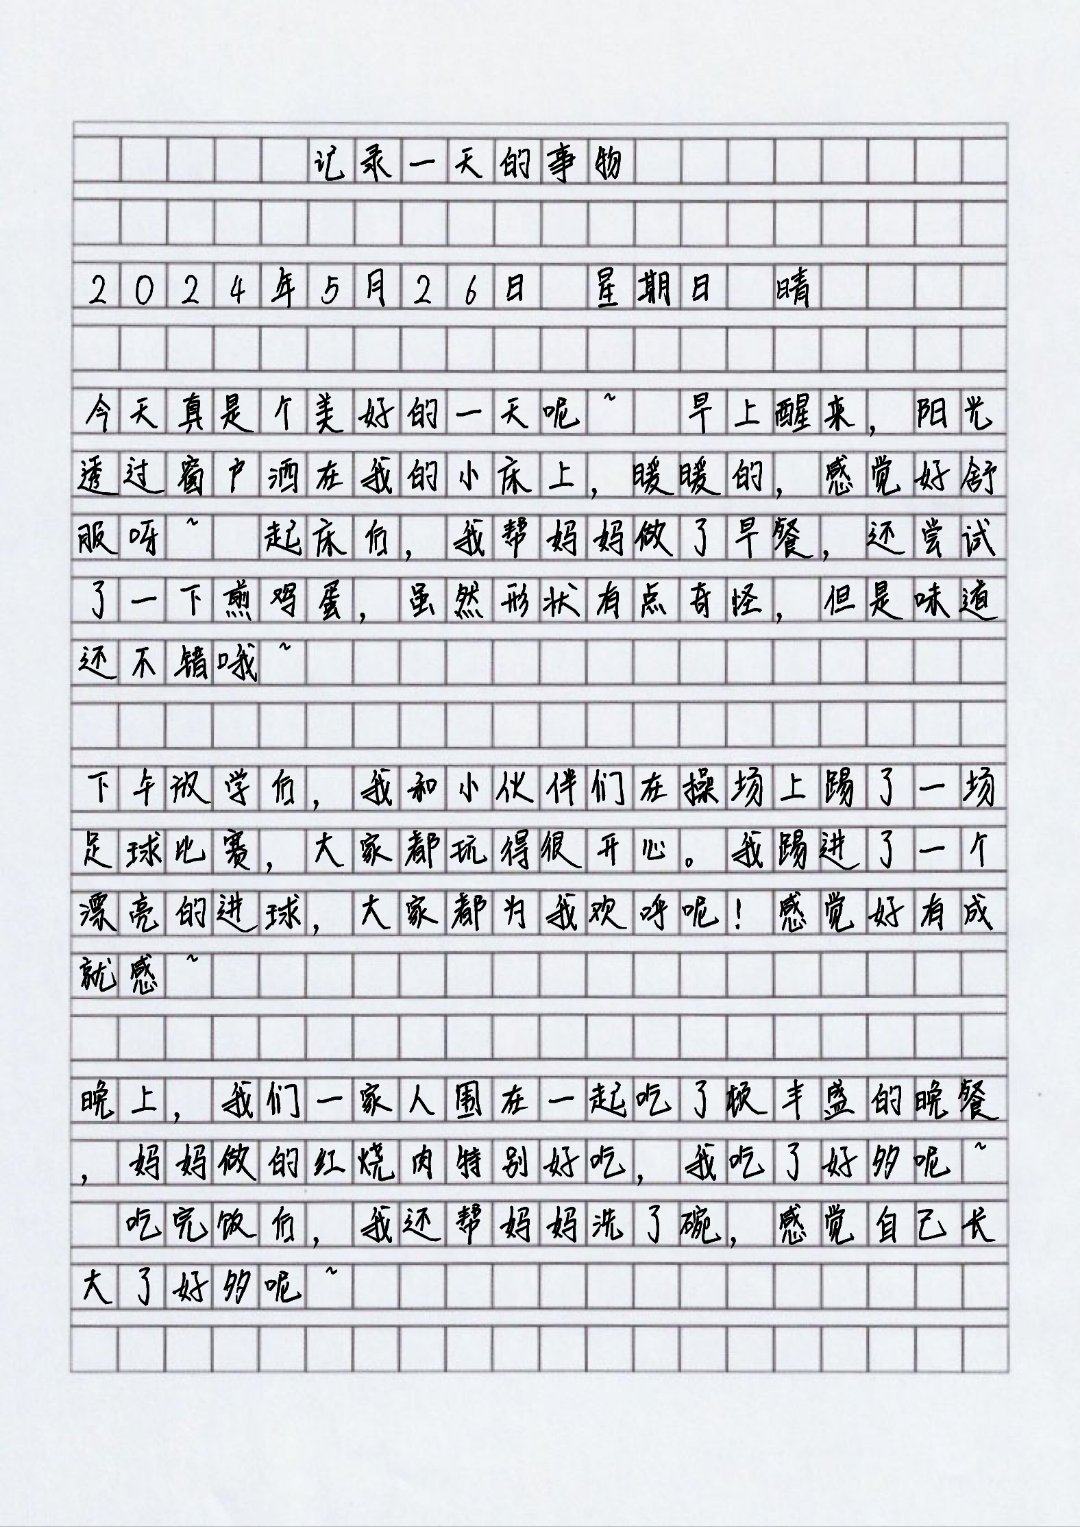 记录一天的事物
2024年5月26日 星期日 晴
今天真是个美好的一天呢~ 早上醒来，阳光
透过窗户洒在我的小床上，暖暖的，感觉好舒
服呀~ 起床后，我帮妈妈做了早餐，还尝试
了一下煎鸡蛋，虽然形状有点奇怪，但是味道
还不错哦~
下午放学后，我和小伙伴们在操场上踢了一场
足球比赛，大家都玩得很开心。我踢进了一个
漂亮的进球，大家都为我欢呼呢！感觉好有成
就感~
晚上，我们一家人围在一起吃了顿丰盛的晚餐
，妈妈做的红烧肉特别好吃，我吃了好多呢~
吃完饭后，我还帮妈妈洗了碗，感觉自己长
大了好多呢~